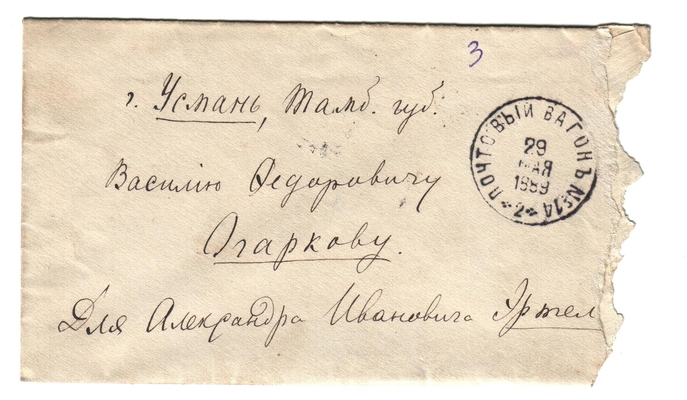 3
г. Усмань, Тамб. губ.
Василію Ѳедоровичу
Огаркову.
Для Александра Ивановича Эртел
ПОЧТОВЫЙ ВАГОНЪ № 14
29
МАЯ
1889
*2*